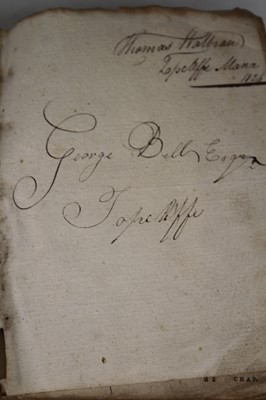 Thomas Walbran
Topcliffe Manor
George Bell Esqr
Topcliffe
CHAP.